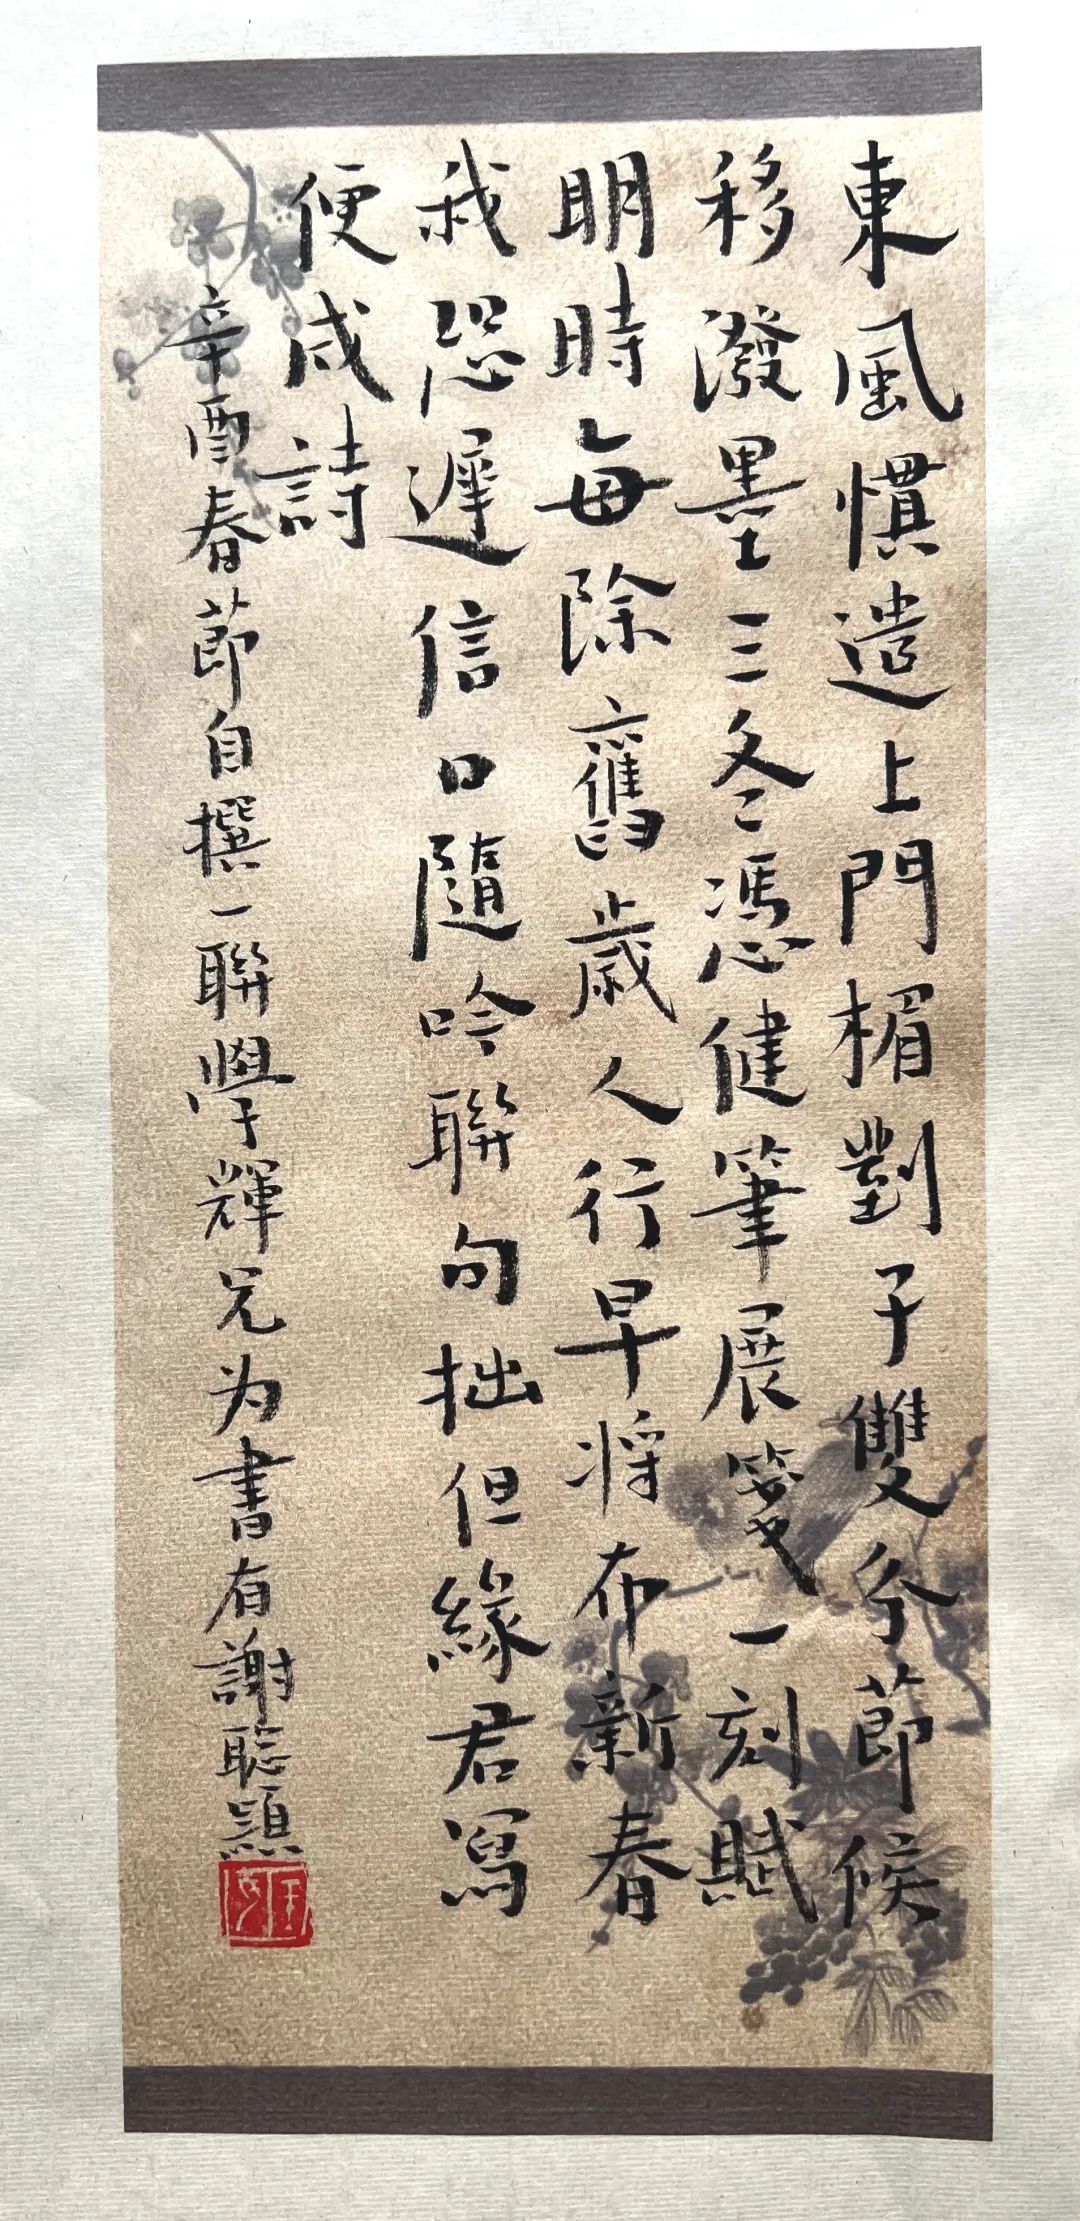 東風慣遣上門楣對子雙分節候
移潑墨三冬憑健筆展箋一刻賦
明時每除舊歲人行早将布新春
我恐遲信口隨吟聯句拙但緣君寫
便成詩
辛酉春節自撰一聯學輝兄为書有謝聰顯